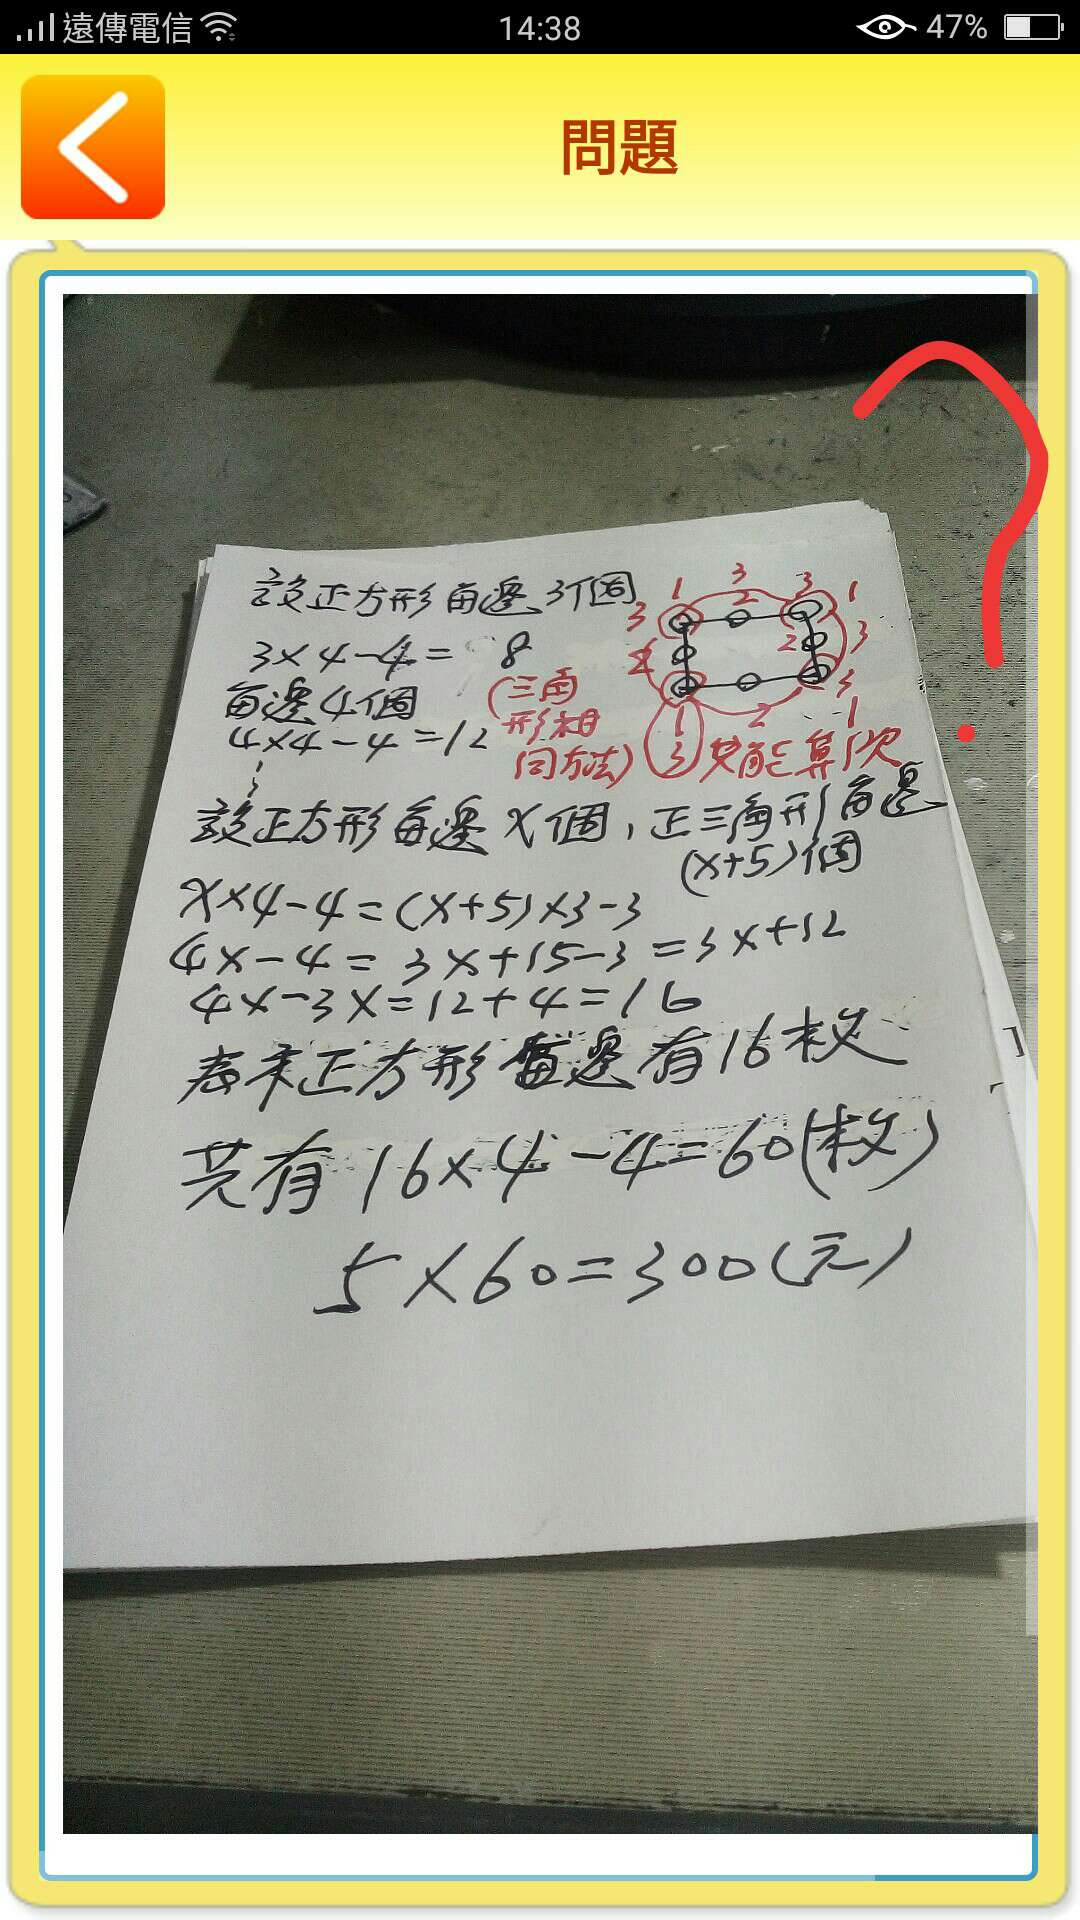 遠傳電信 14:38 47%
問題
設正方形每邊3個
3×4-4= 8
每邊4個
4×4-4=12
(三角
形相
同方法)
3 1 3 2 3 1
2 2 3
1 3 2 3 1
只能算1次
設正方形每邊X個,正三角形每邊
(x+5)個
X×4-4=(x+5)×3-3
4x-4= 3x+15-3=3x+12
4x-3x=12+4=16
表示正方形每邊有16枚
共有16×4-4=60(枚)
5×60=300(元)